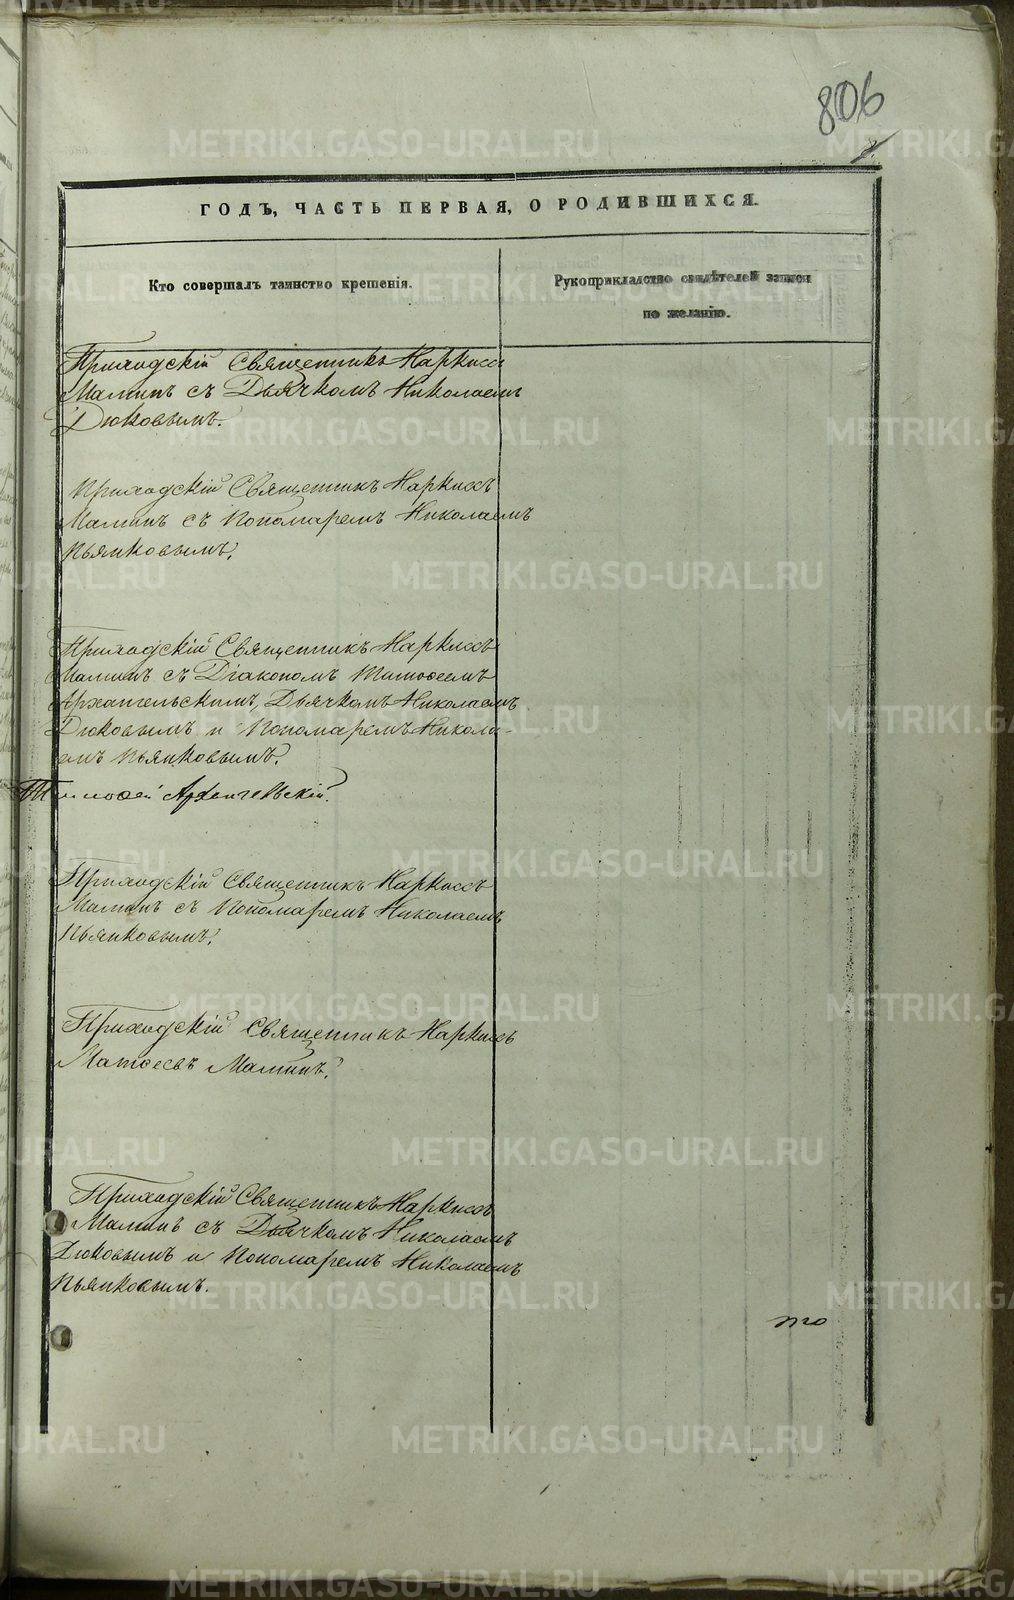 806
ГОДЪ, ЧАСТЬ ПЕРВАЯ, О РОДИВШИХСЯ.
Кто совершалъ таинство крещенія.
Рукоприкладство свидѣтелей записи
по желанію.
Приходскій Священникъ Наркиссъ
Маминъ съ Дьячкомъ Николаемъ
Дюковымъ.
Приходскій Священникъ Наркиссъ
Маминъ съ Пономаремъ Николаемъ
Пьянковымъ.
Приходскій Священникъ Наркиссъ
Маминъ съ Діакономъ Тимоѳеемъ
Архангельскимъ, Дьячкомъ Николаемъ
Дюковымъ и Пономаремъ Никола-
емъ Пьянковымъ.
Тимоѳей Архангельскій.
Приходскій Священникъ Наркиссъ
Маминъ съ Пономаремъ Николаемъ
Пьянковымъ.
Приходскій Священникъ Наркиссъ
Матѳеевъ Маминъ.
Приходскій Священникъ Наркиссъ
Маминъ съ Дьячкомъ Николаемъ
Дюковымъ и Пономаремъ Николаемъ
Пьянковымъ.
то
METRIKI.GASO-URAL.RU